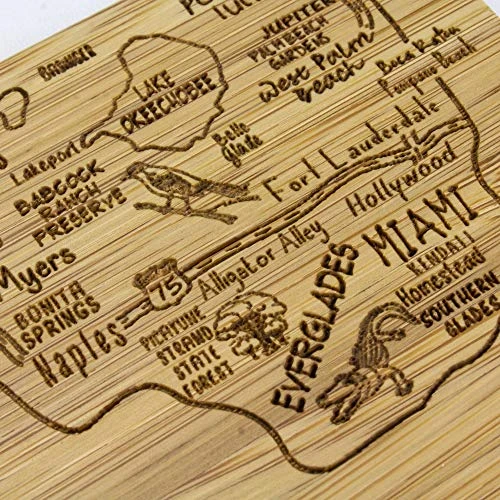 JUPITER
PALM BEACH
GARDENS
West Palm
Beach
Boca Raton
Pompano Beach
LAKE
OKEECHOBEE
Lakeport
Belle
Glade
BABCOCK
RANCH
PRESERVE
Fort Lauderdale
Hollywood
MIAMI
KENDALL
Homestead
SOUTHERN
GLADES
Myers
75
Alligator Alley
BONITA
SPRINGS
Naples
PICAYUNE
STRAND
STATE
FOREST
EVERGLADES